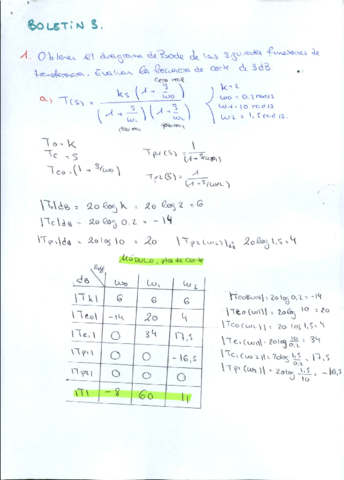 BOLETIN 3.
1. Obtener el diagrama de Bode de las siguientes funciones de
transferencia. Evaluar la frecuencia de corte de 3dB.
cero real
a) T(s) = ks(1 + s/ω0) / (1 + s/ω1)(1 + s/ω2)
k = 2
ω0 = 0,2 rad/s
ω1 = 10 rad/s
ω2 = 1,5 rad/s
polo real
To = K
Tc = S
Tco = (1 + S/ωo)
Tp1(s) = 1/(1+S/ωp1)
Tp2(s) = 1/(1+S/ωp2)
|To|dB = 20 log k = 20 log 2 = 6
|Tc|dB = 20 log 0.2 = -14
|Tp1|dB = 20 log 10 = 20 |Tp2(ω2)|dB 20 log 1,5 = 4
MÓDULO, pto de corte
dB ω0 ω1 ω2
|Tk| 6 6 6
|Tco| -14 20 4
|Tc1| 0 34 17,5
|Tp1| 0 0 -16,5
|Tp2| 0 0 0
|T| -8 60 11
|Tco(ω0)| = 20 log 0,2 = -14
|Tco(ω1)| = 20 log 10 = 20
|Tco(ω2)| = 20 log 1,5 = 4
|Tc1(ω1)| = 20 log 10/0,2 = 34
|Tc1(ω2)| = 20 log 1,5/0,2 = 17,5
|Tp1(ω2)| = 20 log 1,5/10 = -16,5